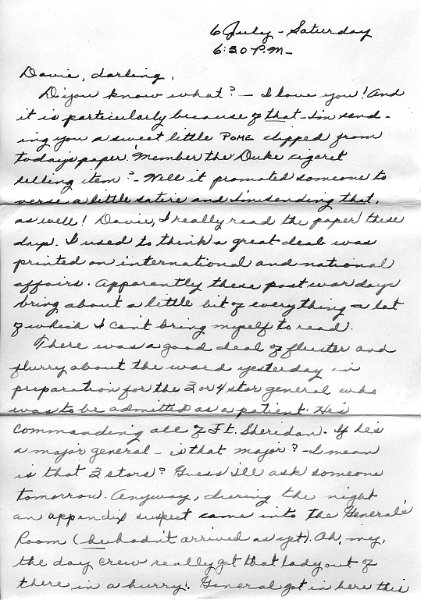 6 July - Saturday
6:30 P.M. -
Davie, darling,
D'you know what? - I love you! And
it is particularly because of that I'm send-
ing you a sweet little POME clipped from
today's paper. 'Member the Duke cigaret
selling item? - Well it promoted someone to
verse a little satire and I'm sending that,
as well! Davie, I really read the paper these
days. I used to think a great deal was
printed on international and national
affairs. Apparently these post war days
bring about a little bit of everything - a lot
of which I can't bring myself to read.
There was a good deal of fluster and
flurry about the ward yesterday in
preparation for the 3 or 4 star general who
was to be admitted as a patient. He's
commanding all of Ft. Sheridan. If he's
a major general - is that major? - I mean
is that 2 stars? Guess I'll ask someone
tomorrow. Anyway, during the night
an appendix suspect came into the General's
Room (he hadn't arrived as yet). Oh, my,
the day crew really got that lady out of
there in a hurry! General got in here this